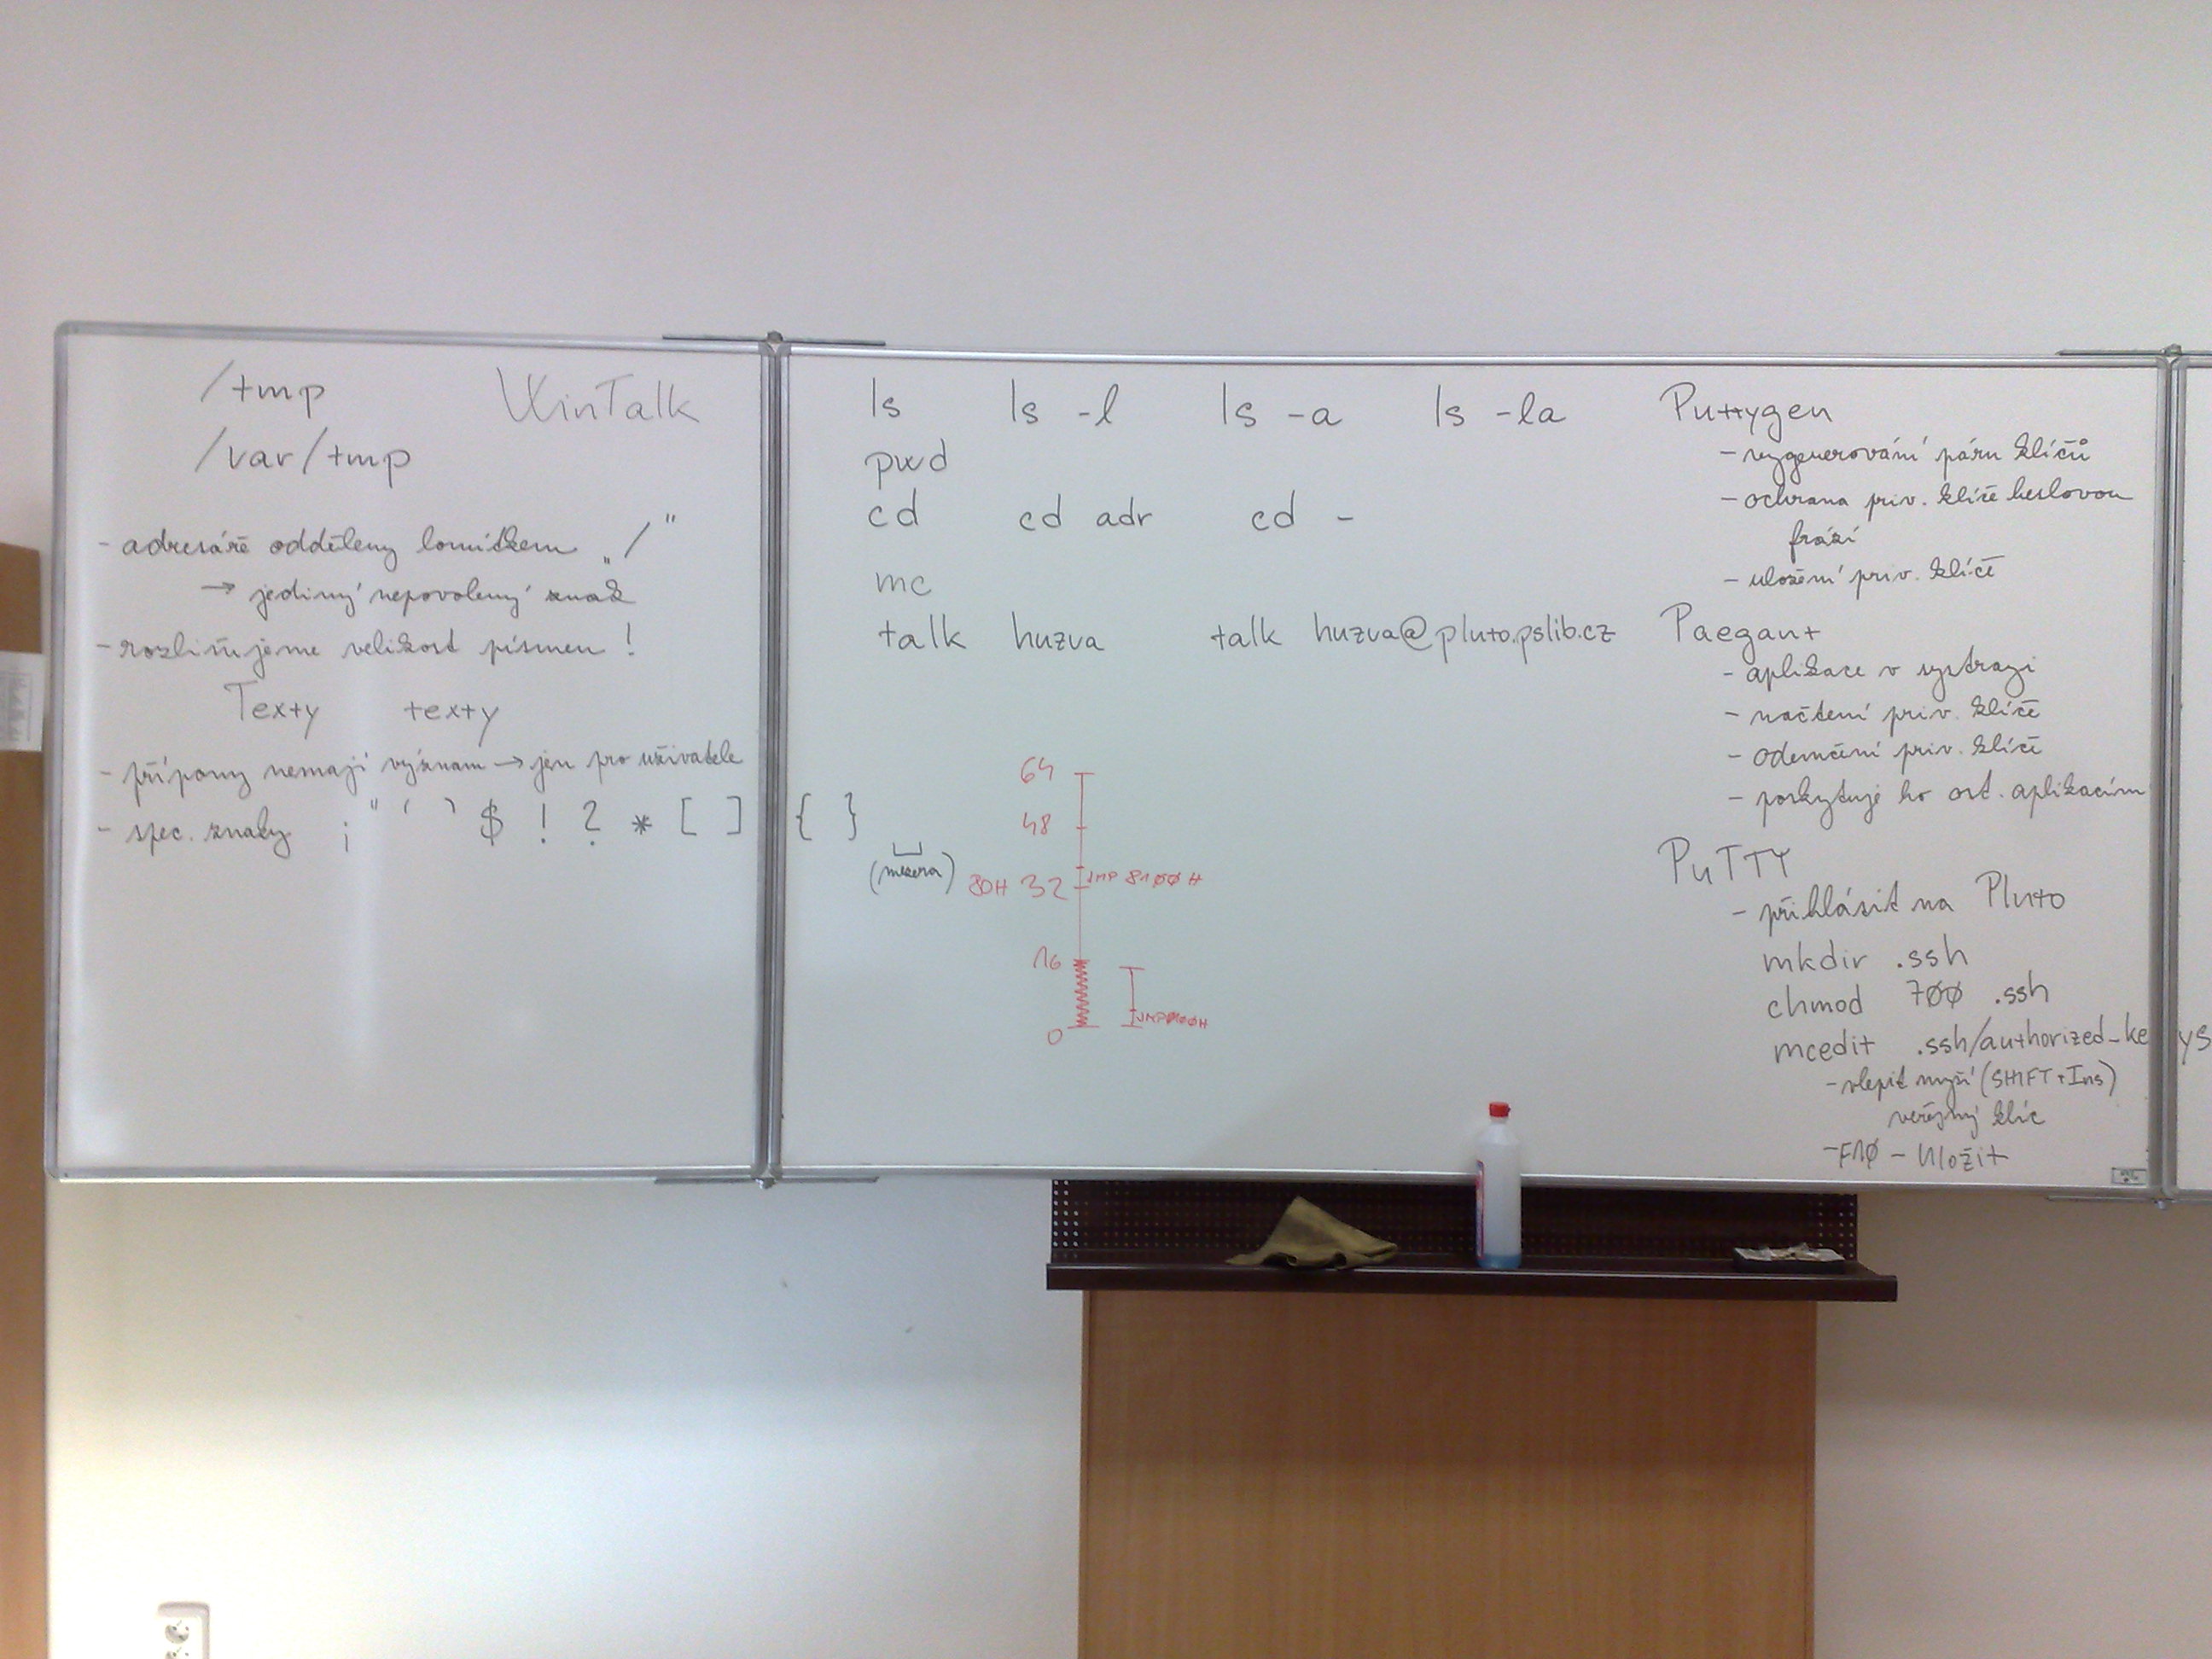 /tmp WinTalk
/var/tmp
- adresáře odděleny lomítkem „/"
→ jediný nepovolený znak
- rozlišujeme velikost písmen !
Texty texty
- přípony nemají význam → jen pro uživatele
- spec. znaky ; " ' ` $ ! ? * [ ] { }
(mezera)
ls ls -l ls -a ls -la
pwd
cd cd adr cd -
mc
talk huzva talk huzva@pluto.pslib.cz
64
48
80H 32 JMP 8100H
16
JMP0100H
0
Puttygen
- vygenerování páru klíčů
- ochrana priv. klíče heslovou
frází
- uložení priv. klíče
Paegant
- aplikace v systrayi
- načtení priv. klíče
- odemčení priv. klíče
- poskytuje ho ost. aplikacím
PuTTY
- přihlásit na Pluto
mkdir .ssh
chmod 700 .ssh
mcedit .ssh/authorized_keys
- vlepit myší (SHIFT+Ins)
veřejný klíč
- F10 - Uložit